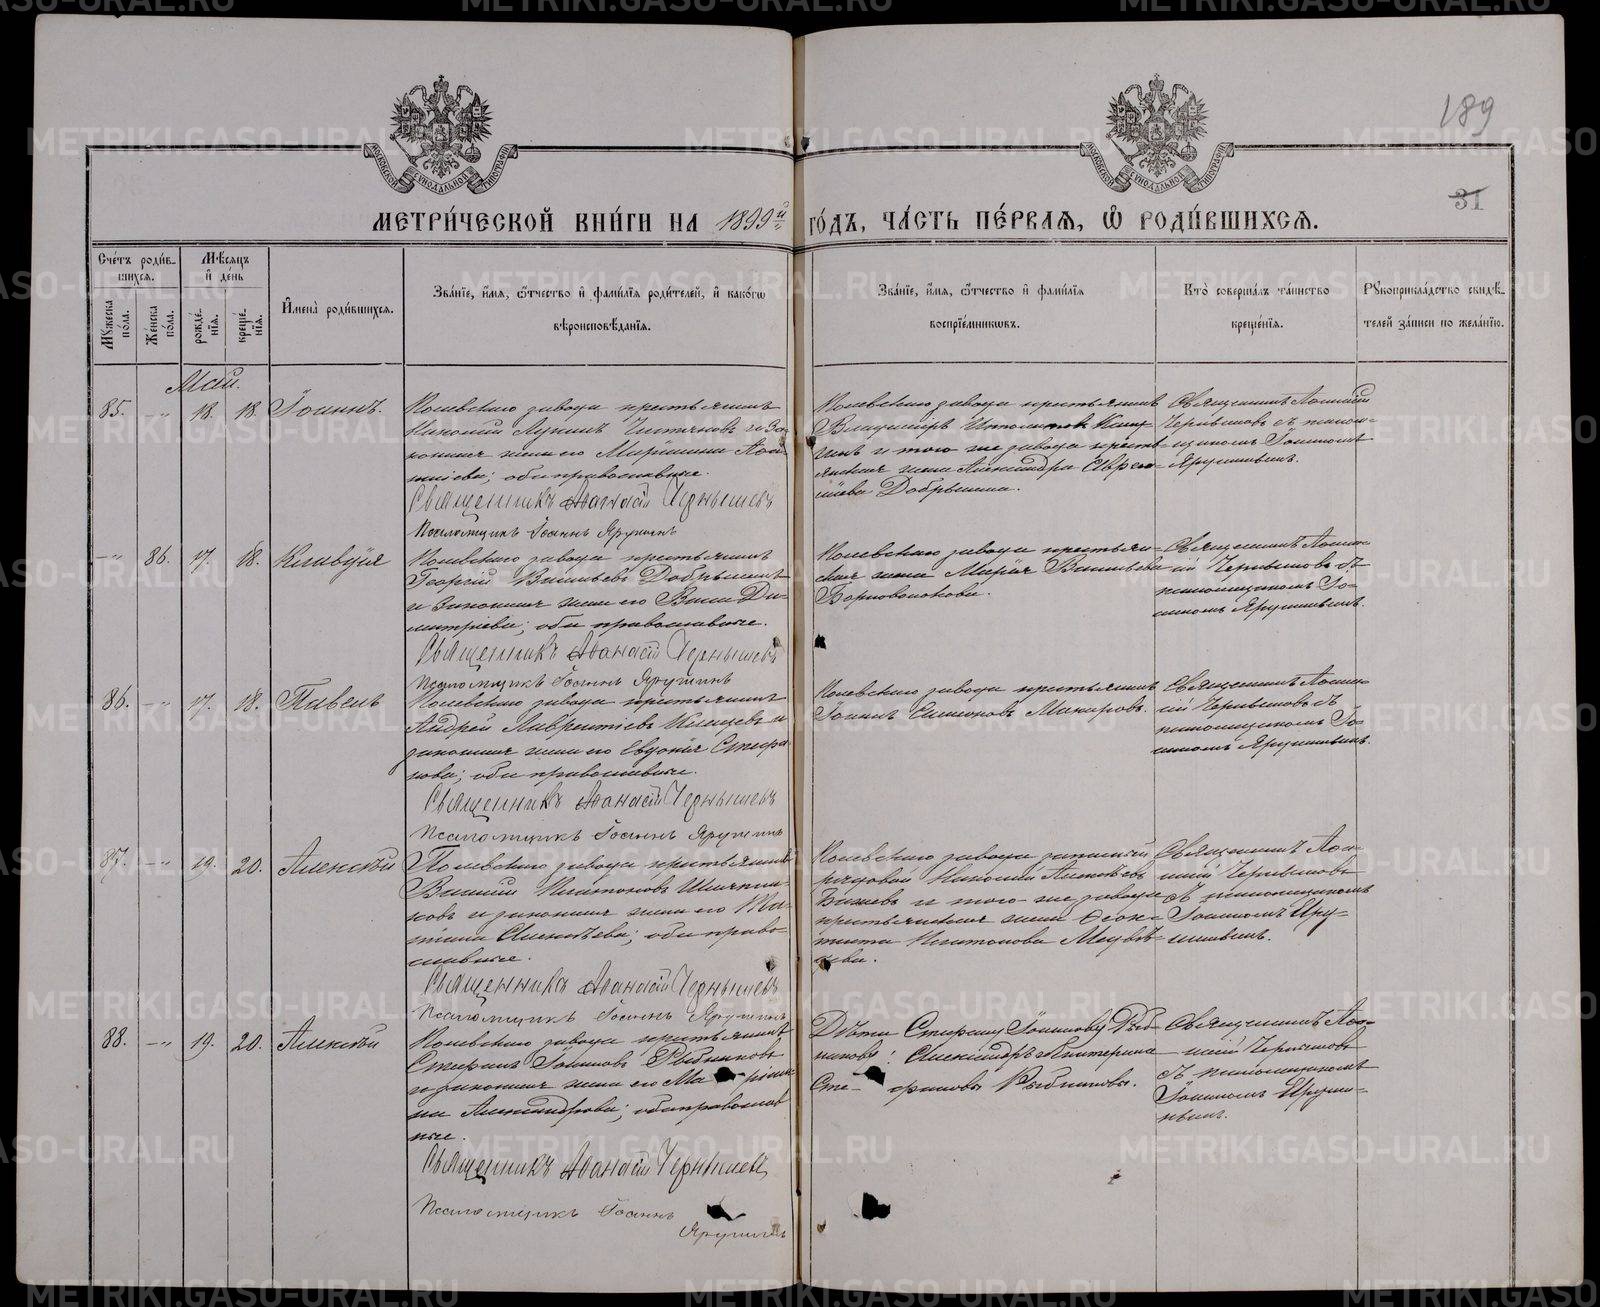 189
31
МОСКОВСКОЙ СѴНОДАЛЬНОЙ ТИПОГРАФІИ
МОСКОВСКОЙ СѴНОДАЛЬНОЙ ТИПОГРАФІИ
МЕТРИ́ЧЕСКОЙ КНИ́ГИ НА 1899й ГО́ДЪ, ЧА́СТЬ ПЕ́РВАЯ, Ѡ РОДИ́ВШИХСЯ.
Сче́тъ роди́в-
шихся.
Мѣ́сяцъ
и де́нь
Мꙋ́жеска по́ла.
Же́нска по́ла.
рожде́нїя.
креще́нїя.
Имена̀ роди́вшихся.
Зва́нїе, и́мя, ѻ҆́тчество и фами́лїя роди́телей, и како́гѡ
вѣроисповѣ́данїя.
Зва́нїе, и́мя, ѻ҆́тчество и фами́лїя
воспрїе́мниковъ.
Кто̀ соверша́лъ та́инство
креще́нїя.
Рꙋкоприкла́дство свидѣ́-
телей за́писи по жела́нїю.
Май.
85. -„- 18. 18. Іоаннъ.
Полевскаго завода крестьянинъ
Николай Лукинъ Чистяковъ и за-
конная жена его Марiанна
; оба православные.
Священникъ Аѳанасiй Чернышевъ
Псаломщикъ Іоаннъ Ярушинъ
Полевскаго завода крестьянинъ
Владимiръ
и того же завода кресть-
янская жена Александра
Добрынина.
Священникъ Аѳанасiй
Чернышевъ съ псалом-
щикомъ Іоанномъ
Ярушинымъ.
-„- 86. 17. 18. Клавдiя
Полевскаго завода крестьянинъ
Георгiй Васильевъ Добрынинъ
и законная жена его Васса Ди-
митрiева; оба православные.
Священникъ Аѳанасiй Чернышевъ
Псаломщикъ Іоаннъ Ярушинъ
Полевскаго завода крестьян-
ская жена Марiя Васильева
Священникъ Аѳанас-
iй Чернышевъ съ
псаломщикомъ Іо-
анномъ Ярушинымъ.
86. -„- 17. 18. Павелъ
Полевскаго завода крестьянинъ
Андрей Лаврентiевъ и
законная жена его Евдокiя Стефа-
нова; оба православные.
Священникъ Аѳанасiй Чернышевъ
Псаломщикъ Іоаннъ Ярушинъ
Полевскаго завода крестьянинъ
Іоаннъ Симеоновъ Макаровъ.
Священникъ Аѳанас-
iй Чернышевъ съ
псаломщикомъ Іо-
анномъ Ярушинымъ.
87. -„- 19. 20. Алексѣй
Полевскаго завода крестьянинъ
Василiй
и законная жена его Та-
тiана Алексѣева; оба право-
славные.
Священникъ Аѳанасiй Чернышевъ
Псаломщикъ Іоаннъ Ярушинъ
Полевскаго завода запасный
рядовой Николай
и того же завода
крестьянская жена Ѳеок-
тиста Медвѣ-
дева.
Священникъ Аѳа-
насiй Чернышевъ
съ псаломщикомъ
Іоанномъ Яру-
шинымъ.
88. -„- 19. 20. Алексѣй
Полевскаго завода крестьянинъ
Стефанъ Іоанновъ Рыбниковъ
и законная жена его
Александрова; оба православ-
ные.
Священникъ Аѳанасiй Чернышевъ
Псаломщикъ Іоаннъ
Ярушинъ
Дѣти Стефана Іоаннова Рыб-
никова: Александръ и Екатерина
Стефановы Рыбниковы.
Священникъ Аѳа-
насiй Чернышевъ
съ псаломщикомъ
Іоанномъ Яруши-
нымъ.
METRIKI.GASO-URAL.RU